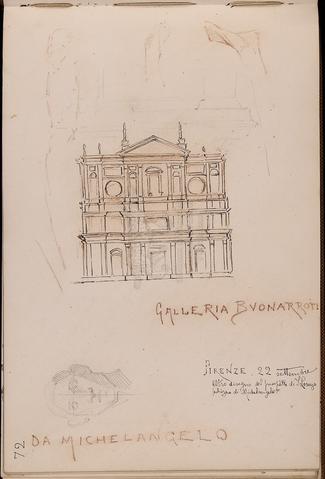 GALLERIA BVONARROTI
FIRENZE 22 settembre
altro disegno del prospetto di S. Lorenzo
di Michelangelo
72
DA MICHELANGELO